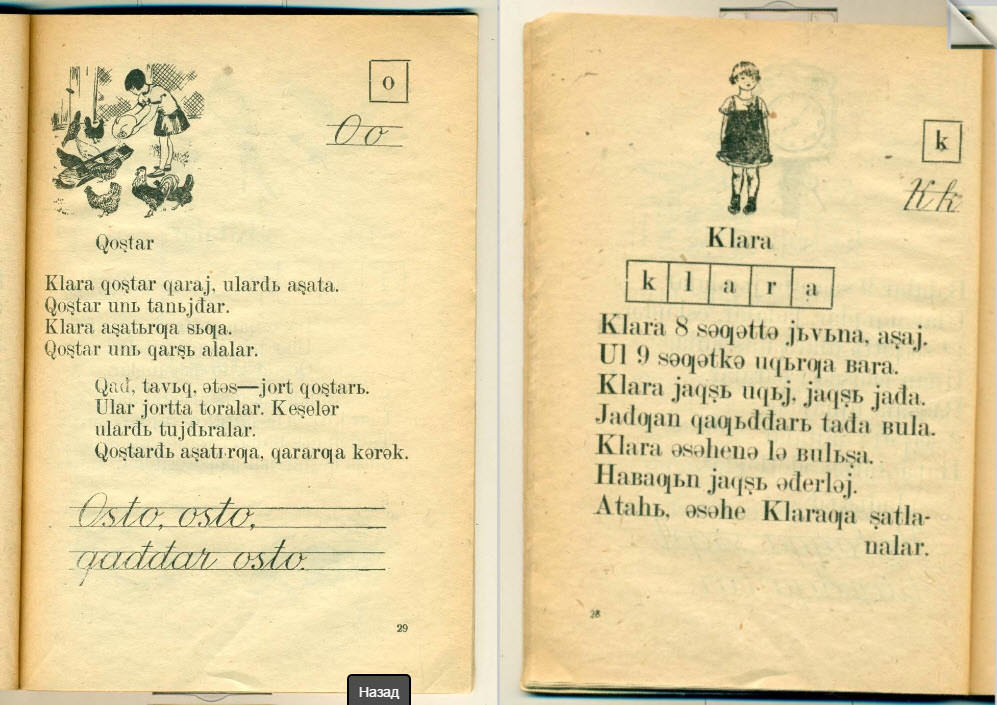 o
O o
Qoştar
Klara qoştar qaraj, ularđь aşata.
Qoştar unь tanьjđar.
Klara aşatьrƣa sьƣa.
Qoştar unь qarşь alalar.
Qađ, tavьq, ətəs—jort qoştarь.
Ular jortta toralar. Keşelər
ularđь tujđьralar.
Qoştarđь aşatьrƣa, qararƣa kərək.
Osto, osto,
qađđar osto.
29
Назад
k
K k
Klara
k l a r a
Klara 8 səƣəttə jьvьna, aşaj.
Ul 9 səƣətkə uqьrƣa ʙara.
Klara jaqşь uqьj, jaqşь jađa.
Jađƣan qaƣьđđarь tađa ʙula.
Klara əsəhenə lə ʙulьşa.
Haʙaƣьn jaqşь əđerləj.
Atahь, əsəhe Klaraƣa şatla-
nalar.
28